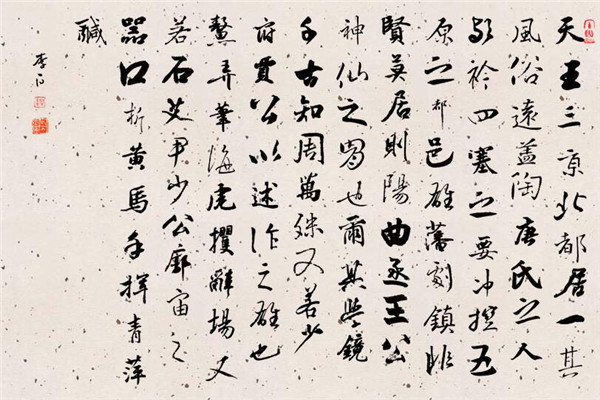 天王三京北都居一其
風俗遠蓋陶唐氏之人
歟衿四塞之要冲控五
原之都邑雄藩劇鎮非
賢莫居則陽曲丞王公
神仙之胄也爾其學鏡
千古知周萬殊又若少
府賈公以述作之雄也
鰲弄筆海虎攫辭場又
若石艾尹少公廊廟之
器口折黃馬手揮青萍
鹹